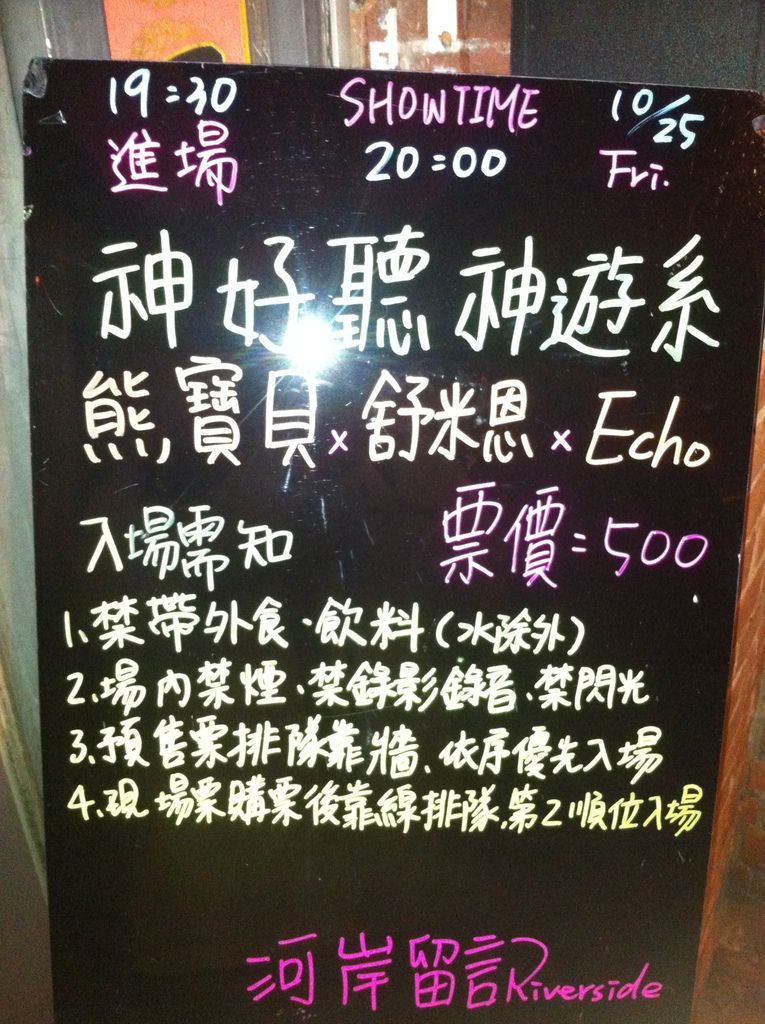 19:30 SHOWTIME 10/25
進場 20:00 Fri.
神好聽 神遊系
熊寶貝 x 舒米恩 x Echo
入場需知 票價=500
1.禁帶外食、飲料(水除外)
2.場內禁煙、禁錄影錄音、禁閃光
3.預售票排隊靠牆、依序優先入場
4.現場票購票後靠線排隊,第2順位入場
河岸留言Riverside